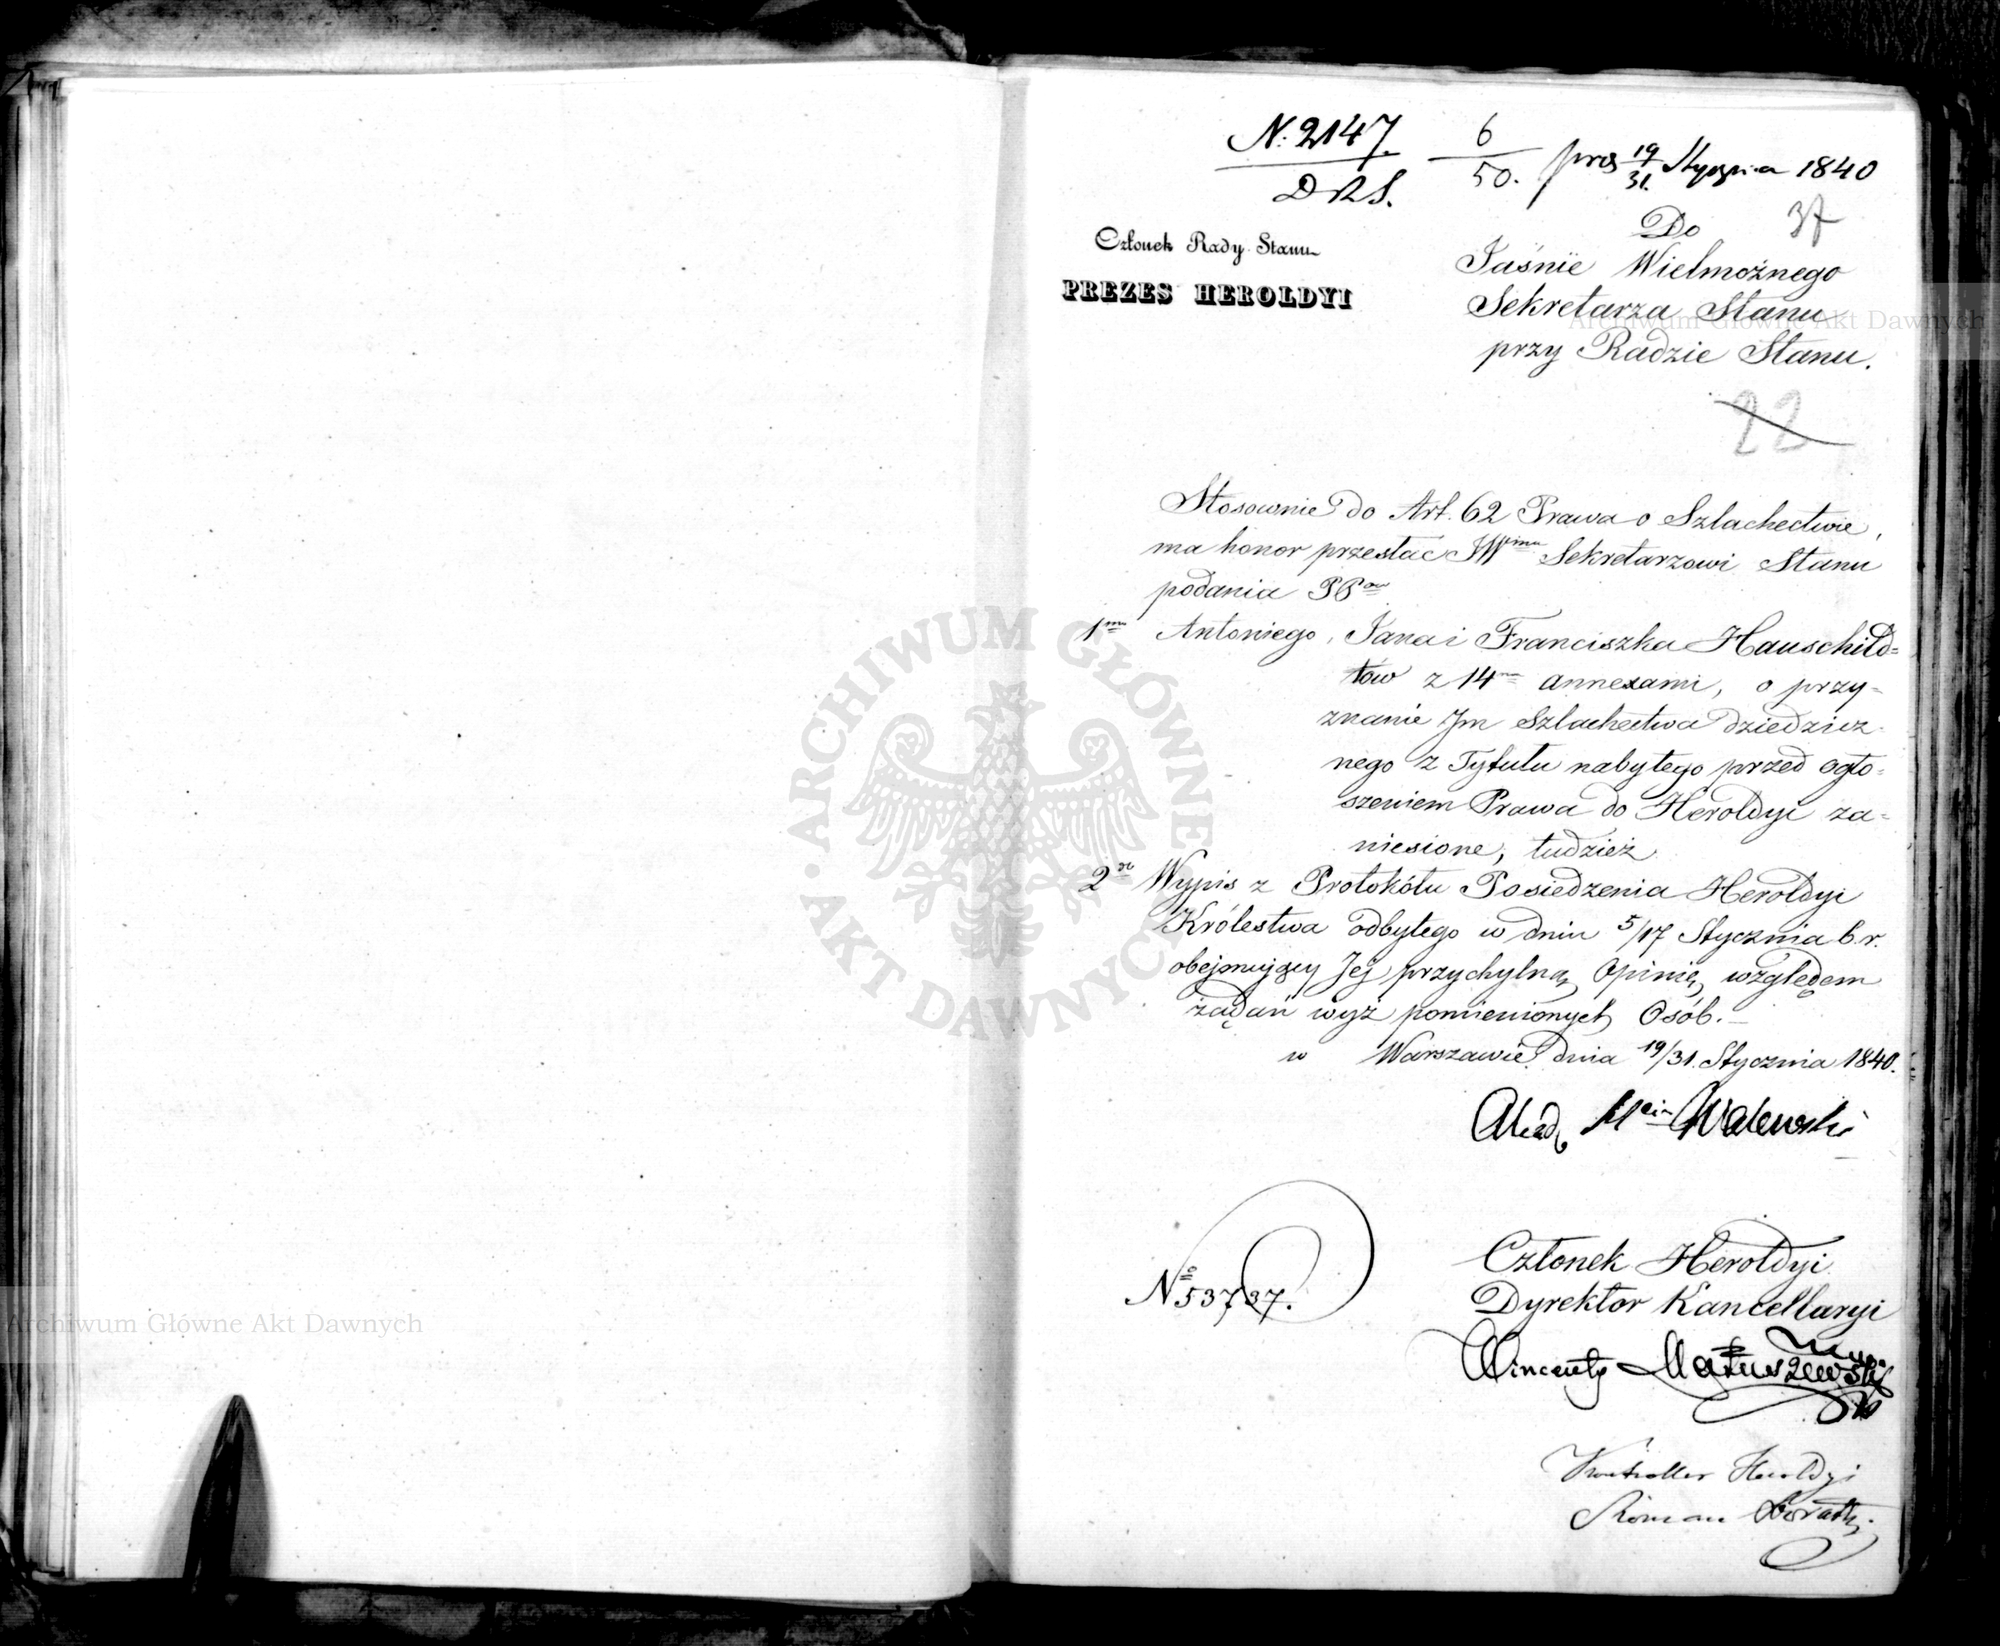 N: 2147.
D R S.
6
50.
pres 19/31. Stycznia 1840
37
Członek Rady Stanu
PREZES HEROLDYI
Do
Jaśnie Wielmożnego
Sekretarza Stanu
przy Radzie Stanu.
22
Stosownie do Art. 62 Prawa o Szlachectwie,
ma honor przesłać JWmu Sekretarzowi Stanu
podania PPow
1mo Antoniego, Jana i Franciszka Hauschild=
tów z 14ma annexami, o przy=
znanie Jm Szlachectwa dziedzicz=
nego z Tytułu nabytego przed ogło=
szeniem Prawa do Heroldyi za=
niesione, tudzież
2do Wypis z Protokółu Posiedzenia Heroldyi
Królestwa odbytego w dniu 5/17 Stycznia b. r.
obejmujący Jej przychylną Opinię względem
żądań wyż pomienionych Osób.
w Warszawie dnia 19/31. Stycznia 1840.
Walewski
Członek Heroldyi
Dyrektor Kancellaryi
Wincenty Matuszewski
No 53737.
Kontroller Heroldyi
Roman
ARCHIWUM GŁÓWNE AKT DAWNYCH
Archiwum Główne Akt Dawnych
Archiwum Główne Akt Dawnych